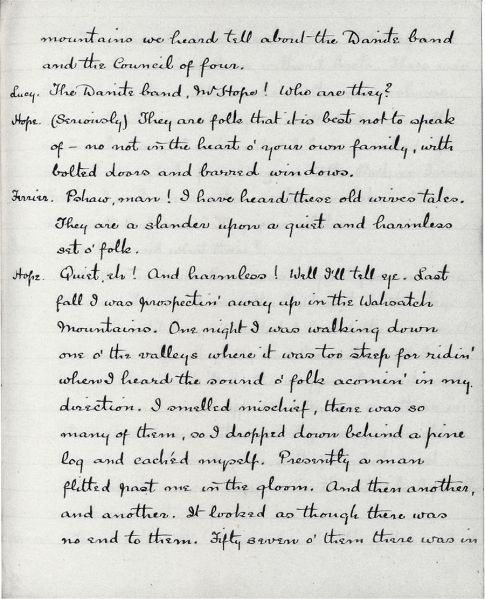 mountains we heard tell about the Danite band
and the Council of four.
Lucy. The Danite band, Mr Hope! Who are they?
Hope. (Seriously) They are folk that it is best not to speak
of – no not in the heart o' your own family, with
bolted doors and barred windows.
Ferrier. Pshaw, man! I have heard these old wives tales.
They are a slander upon a quiet and harmless
set o' folk.
Hope. Quiet, eh! And harmless! Well I'll tell ye. Last
fall I was prospectin' away up in the Wahsatch
Mountains. One night I was walking down
one o' the valleys where it was too steep for ridin'
when I heard the sound o' folk acomin' in my
direction. I smelled mischief, there was so
many of them, so I dropped down behind a pine
log and cachéd myself. Presently a man
flitted past me in the gloom. And then another,
and another. It looked as though there was
no end to them. Fifty seven o' them there was in